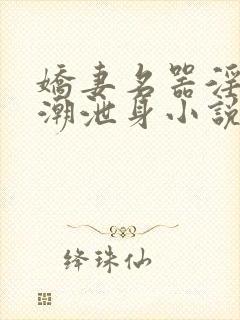 嬌妻名器淫
潮泄身小說
绛珠仙